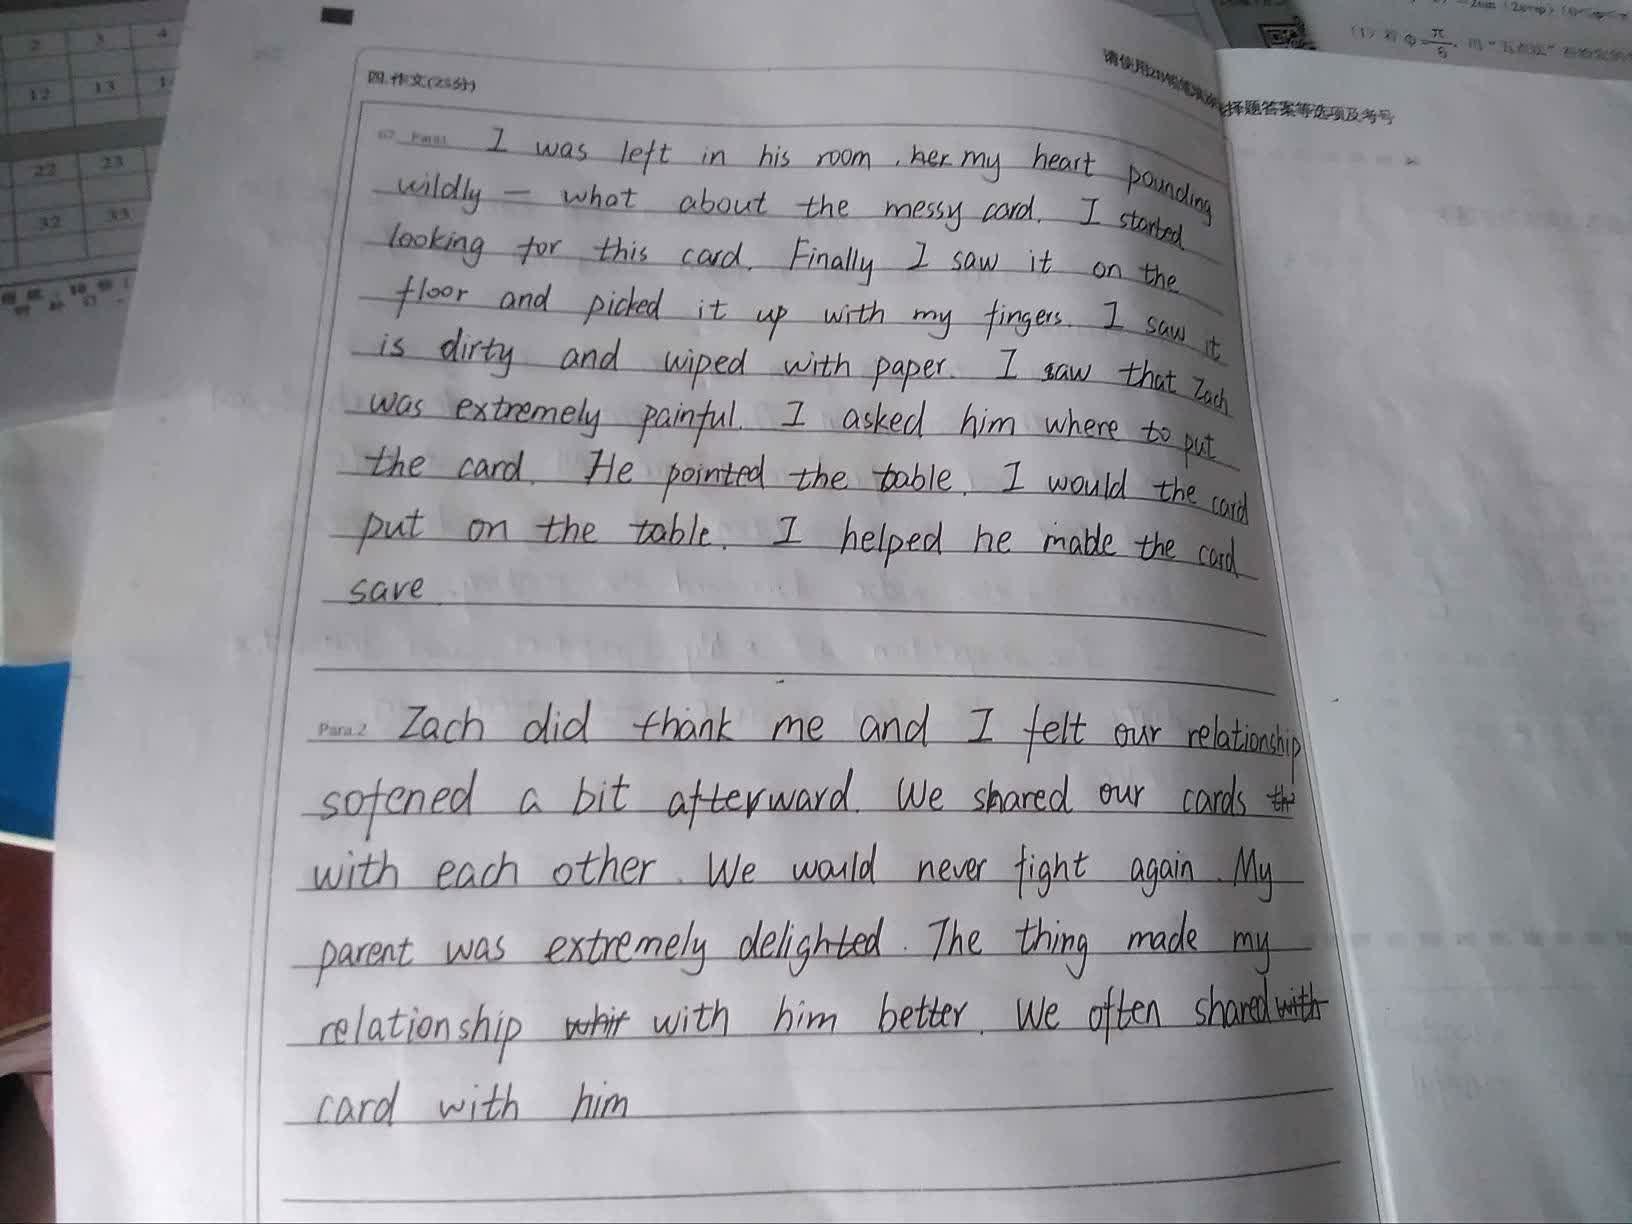 2 3 4
12 13
22 23
32 33
四.作文(25分)
Para1 I was left in his room , her my heart pounding
wildly — what about the messy card. I started
looking for this card. Finally I saw it on the
floor and picked it up with my fingers. I saw it
is dirty and wiped with paper. I saw that Zach
was extremely painful. I asked him where to put
the card. He pointed the table. I would the card
put on the table. I helped he made the card
save.
Para.2 Zach did thank me and I felt our relationship
sofened a bit afterward. We shared our cards
with each other. We would never fight again. My
parent was extremely delighted. The thing made my
relationship with him better. We often shared
card with him
择题答案等选项及考号